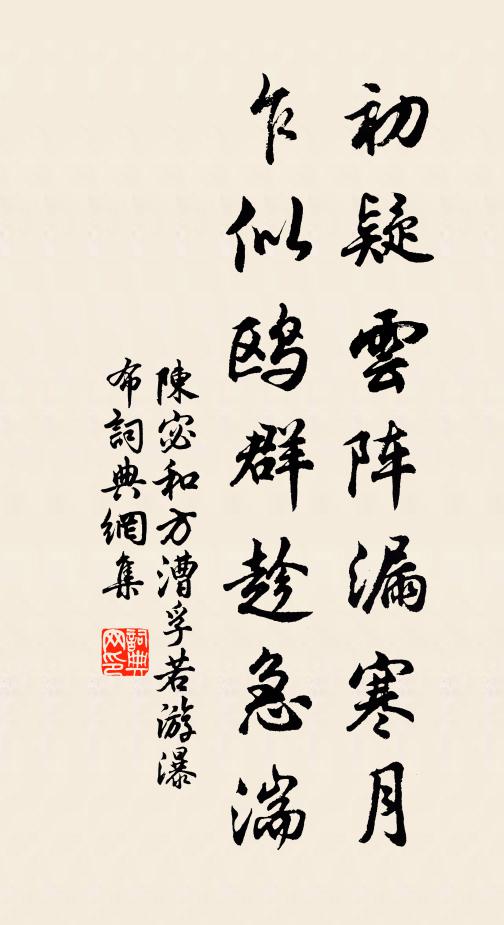 初疑雲阵漏寒月
乍似鸥群趁急湍
陳宓和方漕孚若游瀑
布詞典網集
詞典网印